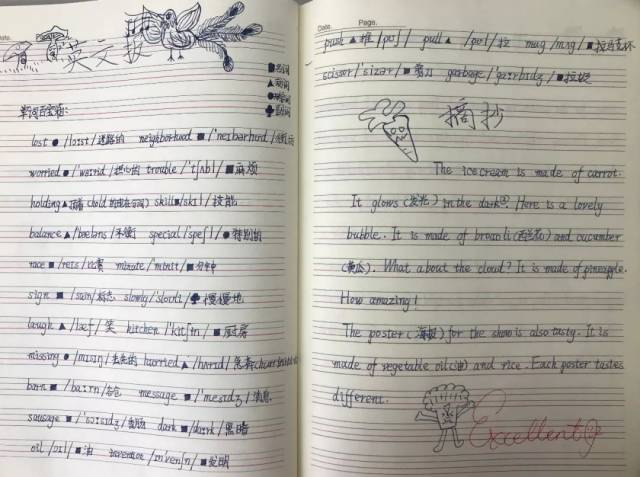 Date.
英文报
■名词
▲动词
●形容词
♣副词
单词百宝箱:
lost ● /lɔːst/ 迷路的 neighborhood ■
worried ● /ˈwɜːrid/ 担心的 trouble /ˈtrʌbl/ ■麻烦
holding ▲ (hold 的现在分词) skill ■ /skɪl/ 技能
balance ▲ /ˈbæləns/ 平衡 special /ˈspeʃl/ ●特别的
race ■ /reɪs/ 比赛 minute /ˈmɪnɪt/ ■分钟
sign ■ /saɪn/ 标志 slowly /ˈsləʊli/ ♣慢慢地
laugh ▲ /læf/ 笑 kitchen /ˈkɪtʃɪn/ ■厨房
missing ● /mɪsɪŋ/ 丢失的 hurried ▲
barn ■ /bɑːrn/ 谷仓 message ■ /ˈmesɪdʒ/ 消息
sausage ■ /ˈsɔːsɪdʒ/ 香肠 dark ■ /dɑːrk/ 黑暗
oil /ɔɪl/ ■油 invention /ɪnˈvenʃn/ ■发明
Date. Page.
push ▲ 推 /pʊʃ/ pull ▲ /pʊl/ 拉 mug /mʌg/ ■
scissor /ˈsizər/ ■剪刀 garbage /ˈgɑːrbɪdʒ/ ■垃圾
摘抄
The ice cream is made of carrot.
It glows (发光) in the dark. Here is a lovely
bubble. It is made of broccoli (西兰花) and cucumber
(黄瓜). What about the cloud? It is made of pineapple.
How amazing!
The poster (海报) for the show is also tasty. It is
made of vegetable oil (油) and rice. Each poster tastes
different.
Excellent